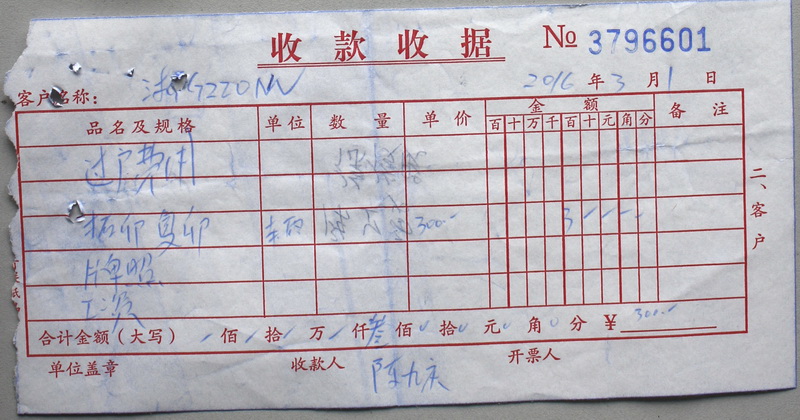 收款收据 № 3796601
客户名称： 浙G220NW 2016 年 3 月 1 日
品名及规格 单位 数量 单价 金额 备注
百 十 万 千 百 十 元 角 分
过户费用
拓印 复印 300.- 3
牌照
工资
合计金额（大写） 佰 拾 万 仟 叁 佰 拾 元 角 分 ￥ 300.-
单位盖章 收款人 陈九庆 开票人
二、客户